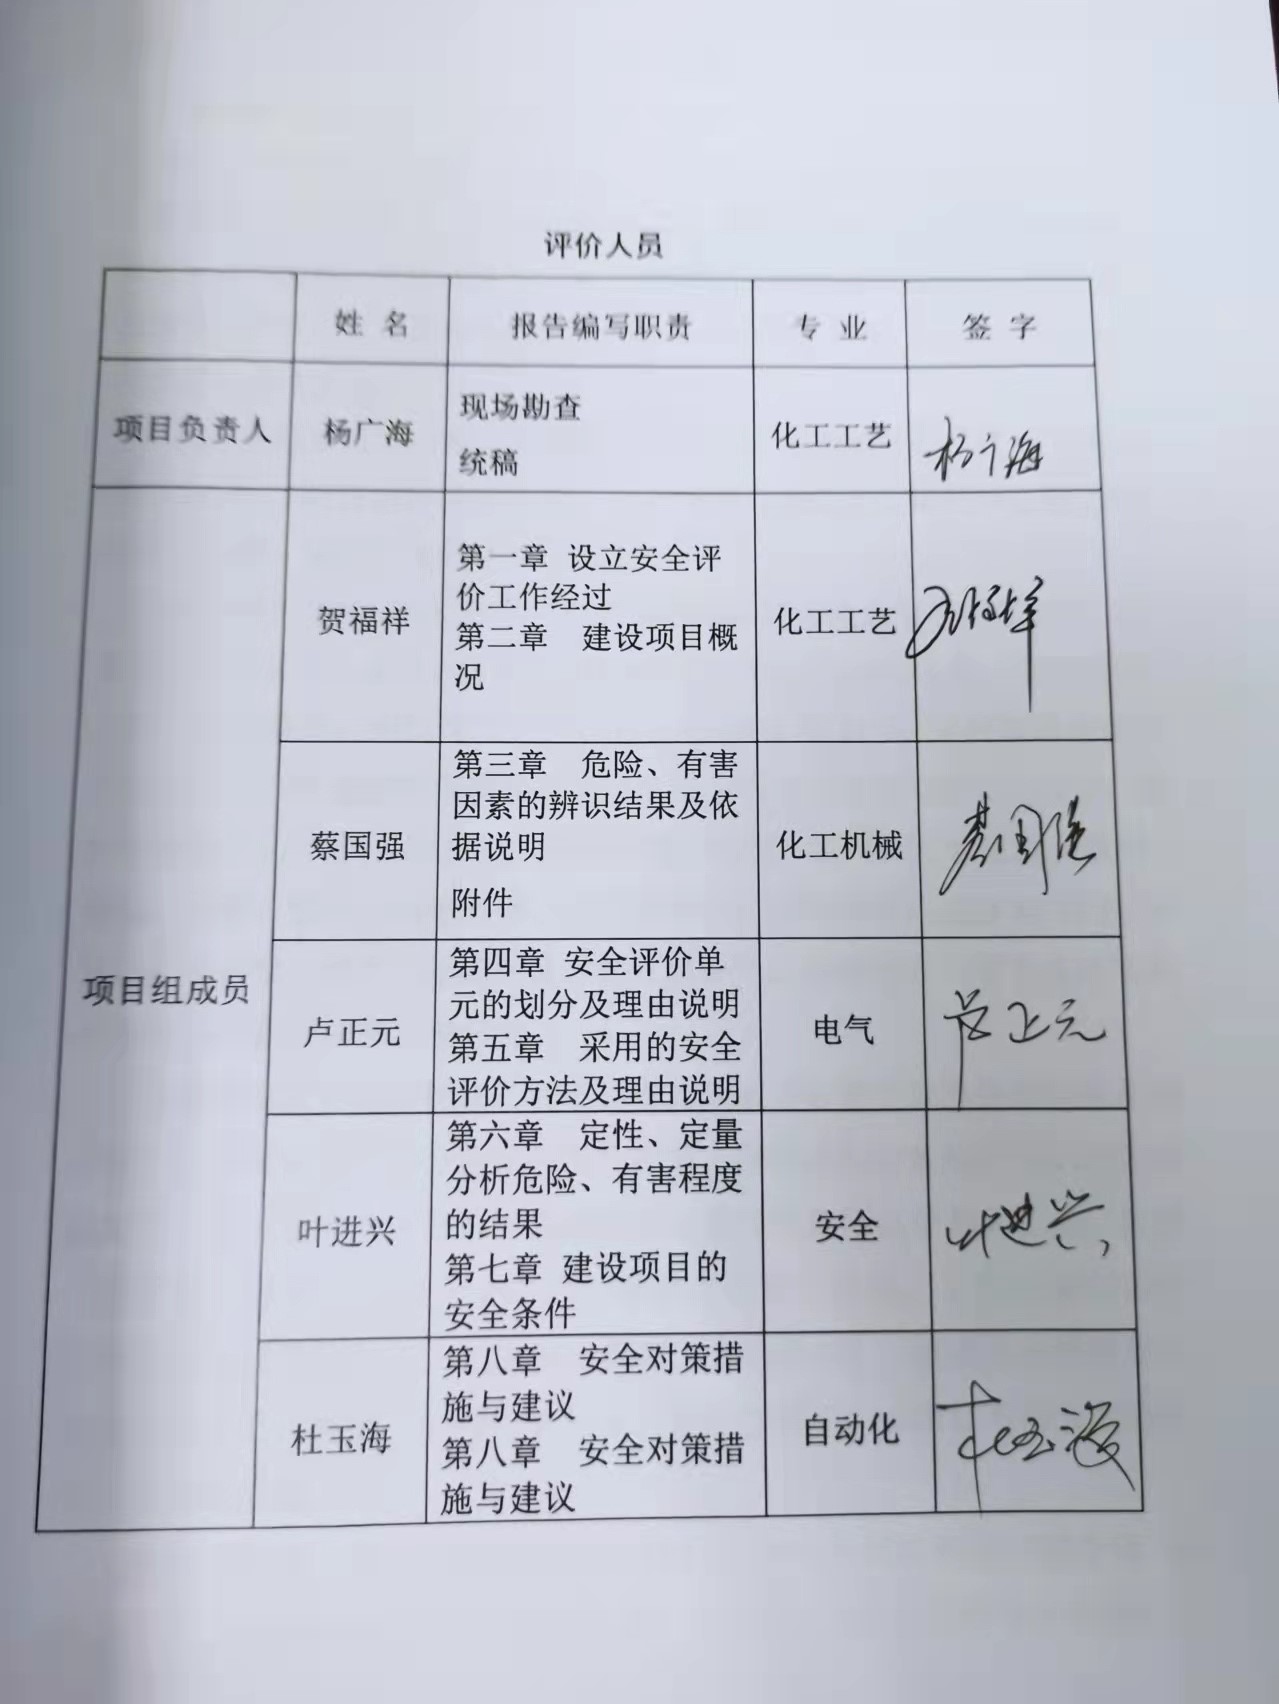 评价人员
姓 名
报告编写职责
专 业
签 字
项目负责人
杨广海
现场勘查
统稿
化工工艺
杨广海
项目组成员
贺福祥
第一章 设立安全评
价工作经过
第二章 建设项目概
况
化工工艺
贺福祥
蔡国强
第三章 危险、有害
因素的辨识结果及依
据说明
附件
化工机械
蔡国强
卢正元
第四章 安全评价单
元的划分及理由说明
第五章 采用的安全
评价方法及理由说明
电气
卢正元
叶进兴
第六章 定性、定量
分析危险、有害程度
的结果
第七章 建设项目的
安全条件
安全
叶进兴
杜玉海
第八章 安全对策措
施与建议
第八章 安全对策措
施与建议
自动化
杜玉海